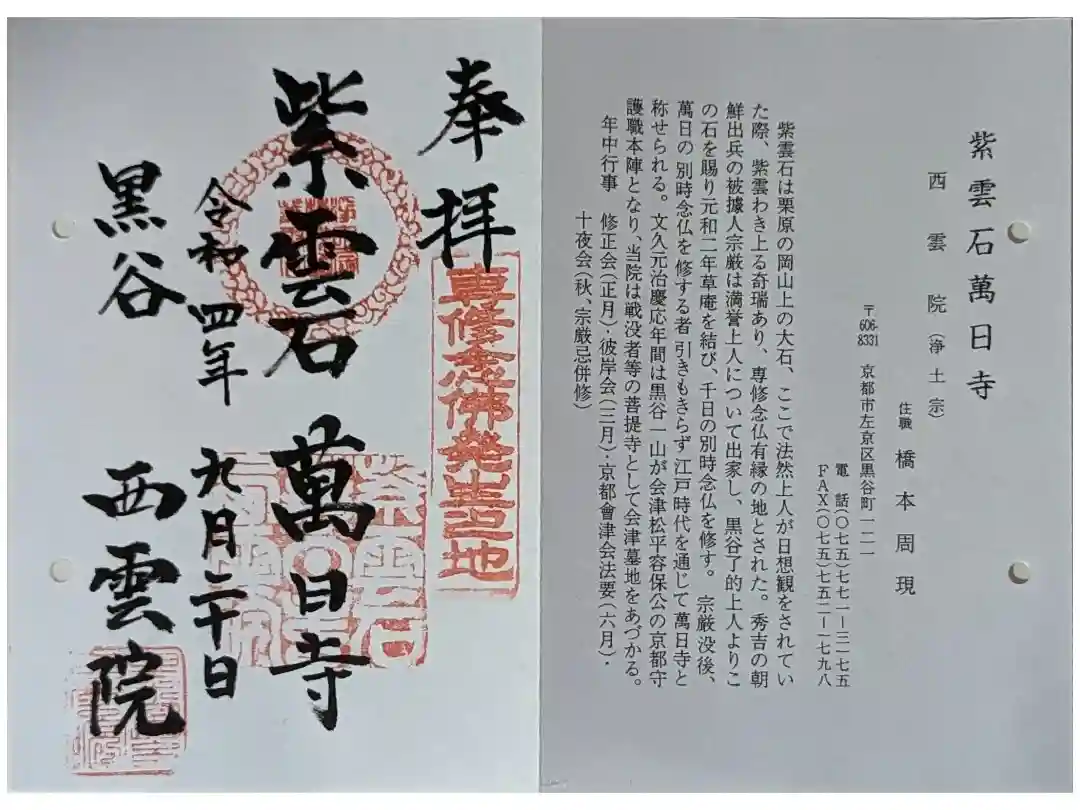 紫雲石萬日寺
西雲院（浄土宗）
住職 橋本周現
〒606-8331 京都市左京区黒谷町一二一
電話（〇七五）七七一ー三一七五
ＦＡＸ（〇七五）七五二ー一七九八
紫雲石は栗原の岡山上の大石、ここで法然上人が日想観をされてい
た際、紫雲わき上る奇瑞あり、専修念仏有縁の地とされた。秀吉の朝
鮮出兵の被擄人宗厳は満誉上人について出家し、黒谷了的上人よりこ
の石を賜り元和二年草庵を結び、千日の別時念仏を修す。 宗厳没後、
萬日の別時念仏を修する者引きもきらず江戸時代を通じて萬日寺と
称せられる。文久元治慶応年間は黒谷一山が会津松平容保公の京都守
護職本陣となり、当院は戦没者等の菩提寺として会津墓地をあづかる。
年中行事 修正会（正月）・彼岸会（三月）・京都會津会法要（六月）・
十夜会（秋、宗厳忌併修）
奉拝
専修念佛発生之地
紫雲石 萬日寺
令和四年 九月二十日
黒谷 西雲院